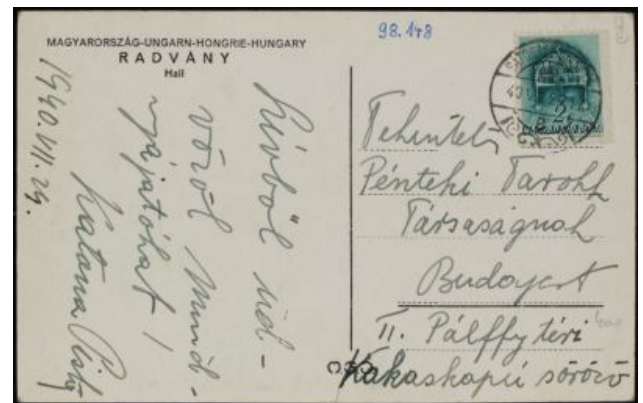 98.148
MAGYARORSZÁG-UNGARN-HONGRIE-HUNGARY
RADVÁNY
Hall
Szivből üd-
vözöl Mind-
nyájatokat!
Katona Pista
1940.VII.29.
2
Tekintetes
Pénteki Tarokk
Társaságnak
Budapest
II. Pálffy téri
Kakaskapú söröző